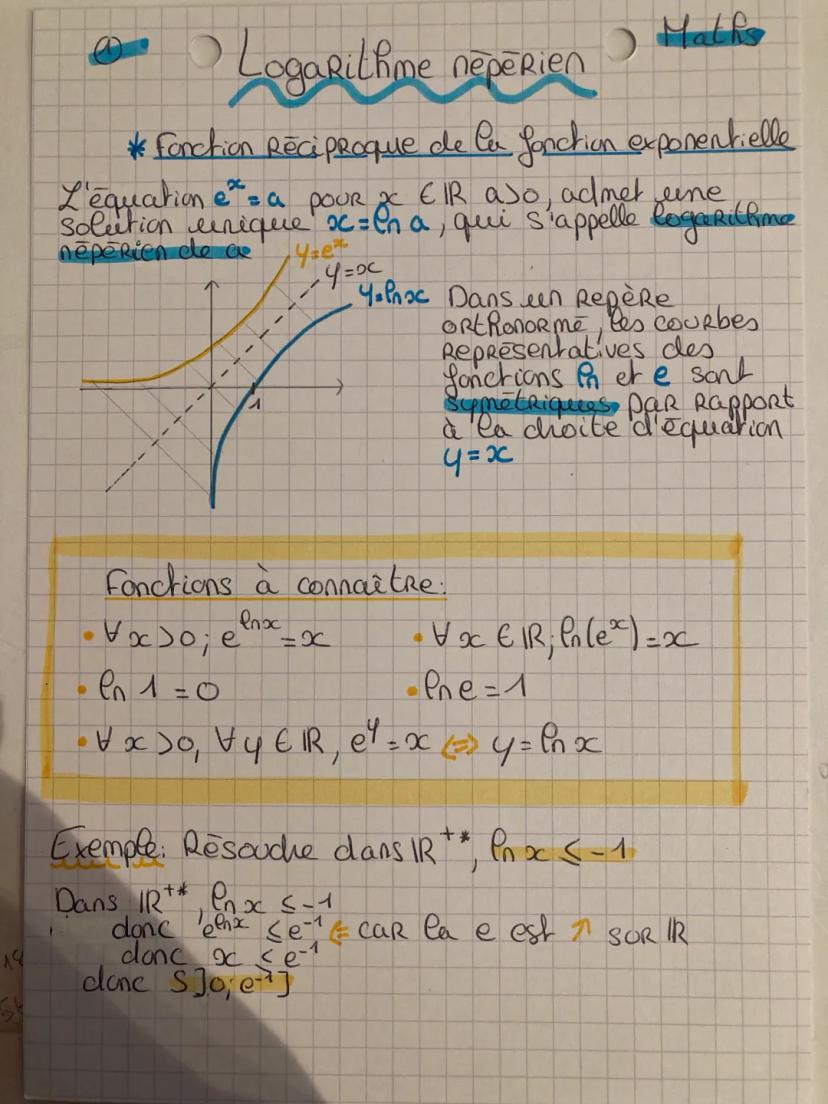 ① Logarithme népérien Maths
* Fonction réciproque de la fonction exponentielle
L'équation eˣ = a pour x ∈ ℝ a>0, admet une
solution unique x = ln a, qui s'appelle logarithme
népérien de a
y=eˣ
y=x
y=ln x
1
Dans un repère
orthonormé, les courbes
représentatives des
fonctions ln et e sont
symétriques par rapport
à la droite d'équation
y = x
Fonctions à connaître:
• ∀ x > 0; e^{ln x} = x
• ∀ x ∈ ℝ; ln(eˣ) = x
• ln 1 = 0
• ln e = 1
• ∀ x > 0, ∀ y ∈ ℝ, e^y = x ⇔ y = ln x
Exemple: Résoudre dans ℝ⁺*, ln x ≤ -1
Dans ℝ⁺*, ln x ≤ -1
donc e^{ln x} ≤ e⁻¹ ⇐ car la e est ↗ sur ℝ
donc x ≤ e⁻¹
donc S ]0; e⁻¹]